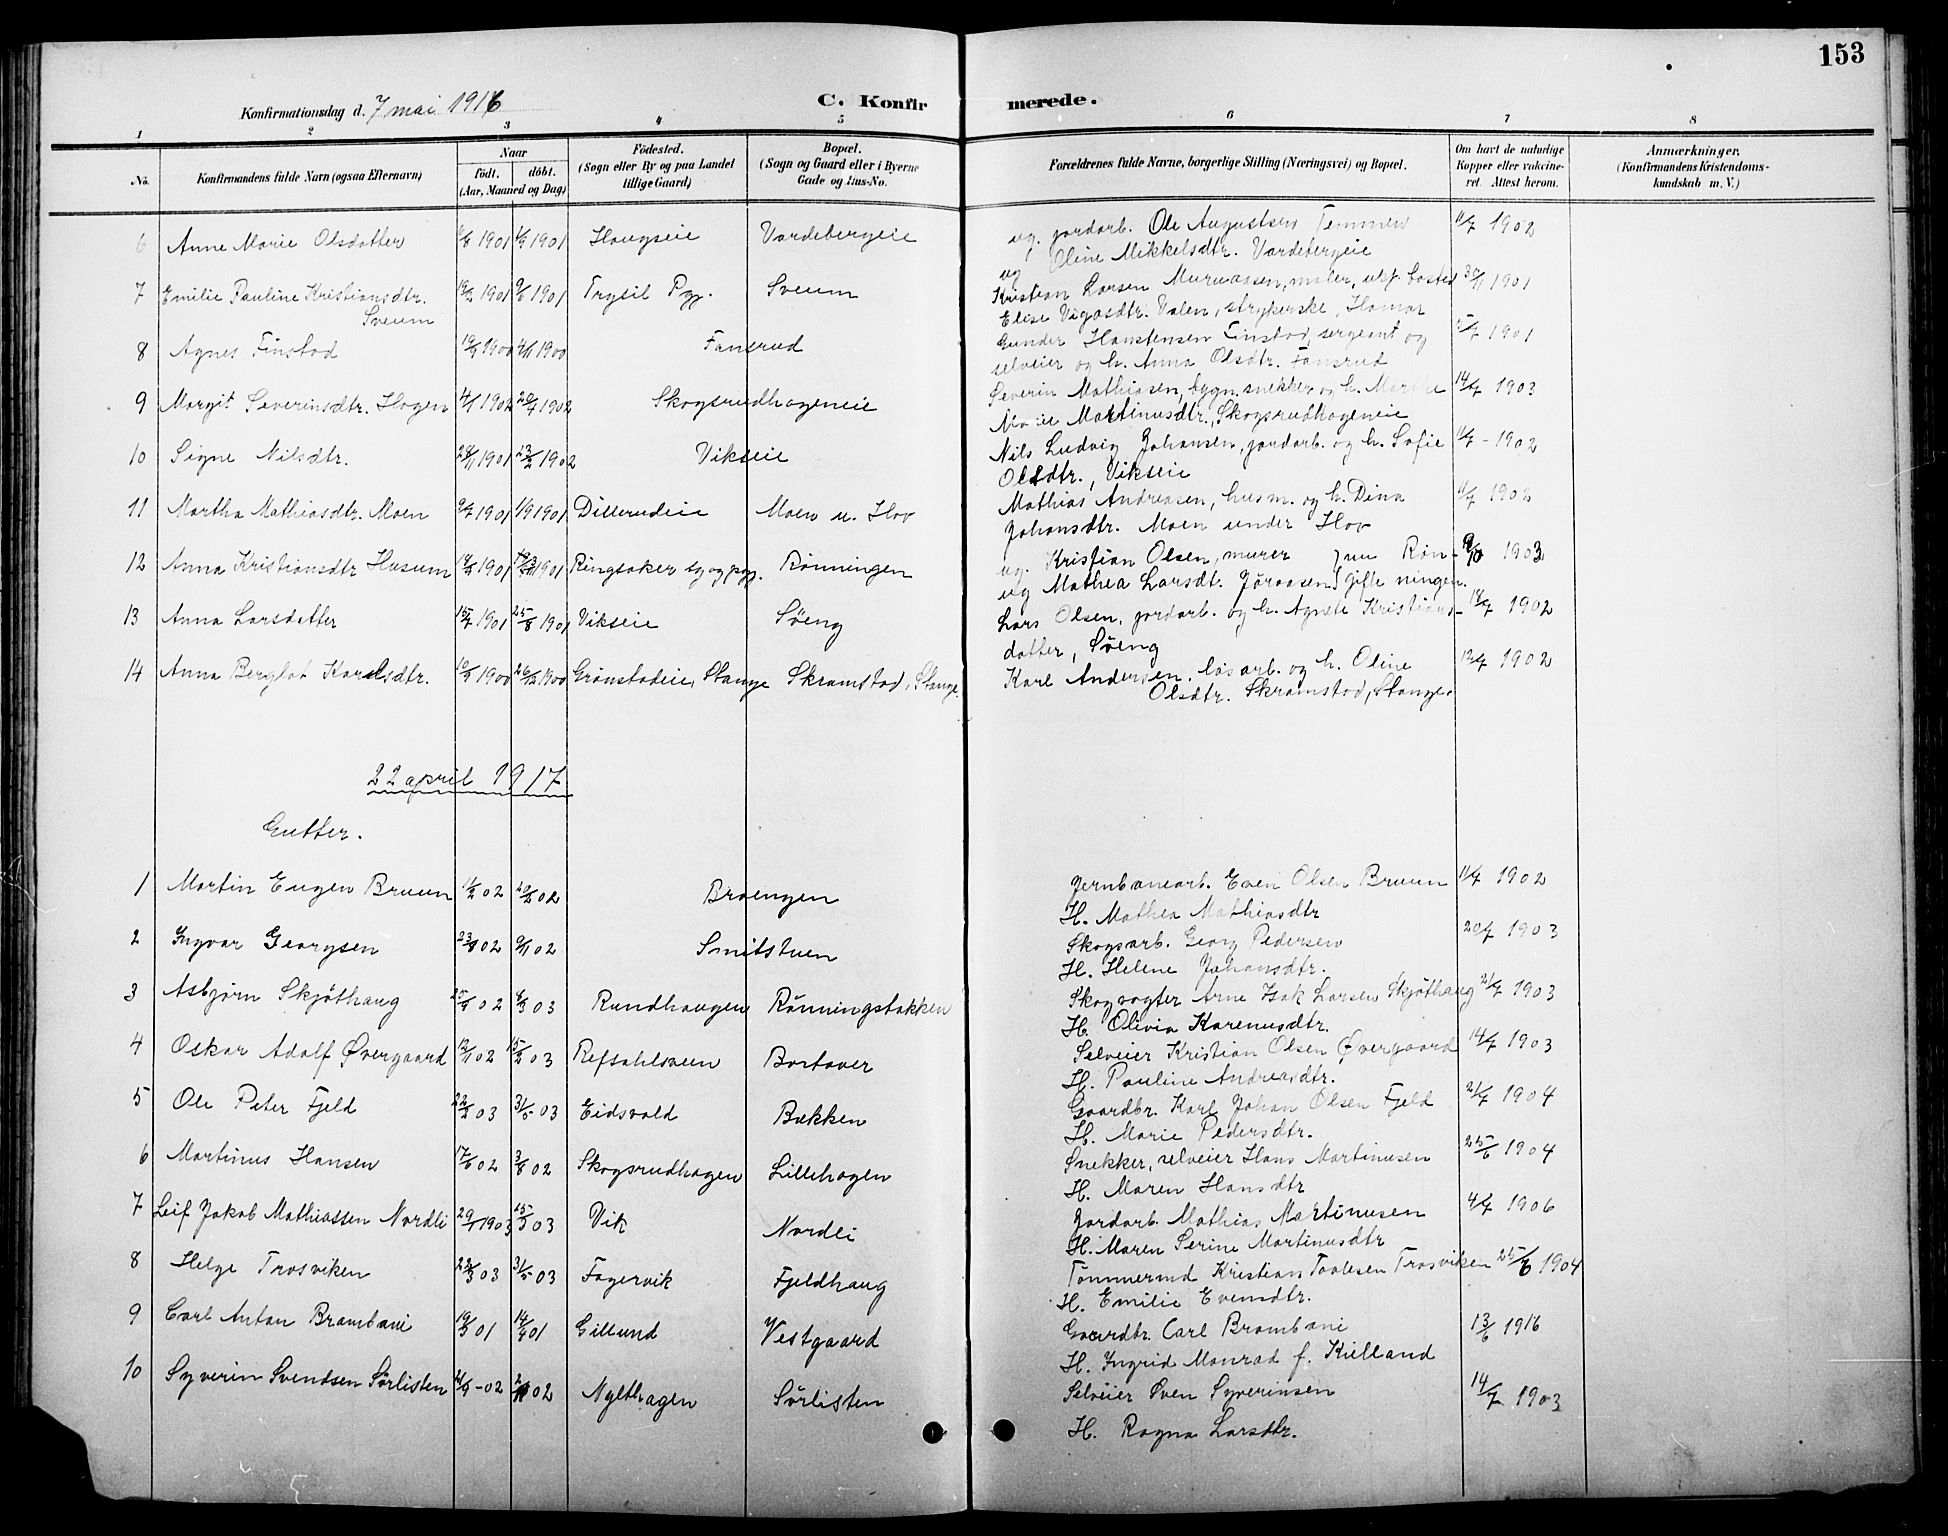 153
Konfirmationsdag d. 7 mai 1916
C. Konfirmerede.
1 2 3 4 5 6 7 8
No. Konfirmandens fulde Navn (ogsaa Efternavn) Naar født. døbt. (Aar, Maaned og Dag) Fødested. (Sogn eller By og paa Landet tillige Gaard) Bopæl. (Sogn og Gaard eller i Byerne Gade og Hus-No. Forældrenes fulde Navne, borgerlige Stilling (Næringsvei) og Bopæl. Om havt de naturlige Kopper eller vakcineret. Attest herom. Anmærkninger, (Konfirmandens Kristendomskundskab m. V.)
6 Anne Marie Olsdatter 1901 1901 Haugseie Vardebergeie ug. jordarb. Ole Augustsen Temmen 11/7 1902
ug Oline Mikkelsdtr. Vardebergeie
7 Emilie Pauline Kristiansdtr. Sveum 1901 1901 Trysil Pgj. Sveum Kristian Larsen maler, 30/11 1901
Elise Valen, strykerske, Hamar
8 Agnes Finstad 1900 1900 Fanerud Gunder Hanstensen Finstad, sergeant og 1901
selveier og h. Anna Olsdtr. Fansrud
9 Margit Severinsdtr. Hagen 4/1 1902 20/4 1902 Skogsrudhageneie Severin Mathiasen, bygn.snekker og h. Marthe 14/7 1903
Martinusdtr., Skogsrudhageneie
10 Signe Nilsdtr. 28/11 1901 23/2 1902 Vikseie Nils Ludvig Johansen, jordarb. og h. Sofie 11/7 - 1902
Olsdtr., Vikseie
11 Martha Mathiasdtr. Moen 1901 1/9 1901 Dillerudeie Moen u. Hov Mathias Andreasen, husm. og h. Dina 11/7 1902
Johansdtr. Moen under Hov
12 Anna Kristiansdtr Husum 1901 1901 Ringsaker sg og pgj. Rønningen ug. Kristian Olsen, murer } nu Røn- 1903
ug Mathea Larsdt. Jøraasen } gifte ningen.
13 Anna Larsdatter 15/7 1901 25/8 1901 Vikseie Søeng Lars Olsen, jordarb. og h. Agnete Kristians- 18/7 1902
datter, Søeng
14 Anna Bergljot Karlsdtr. 1900 26/12 1900 Grønstadeie, Stange Skramstad, Stange. Karl Andersen, løsarb. og h. Oline 12/7 1902
Olsdtr. Skramstad, Stange.
22 april 1917
Gutter.
1 Martin Eugen Bruun 02 02 Braengen Jernbanearb. Even Olsen Bruun 11/7 1902
H. Mathea Mathiasdtr
2 Ingvar Georgsen 02 9/11 02 Smitstuen Skogsarb. Georg Pedersen 20/7 1903
H. Helene Johansdtr.
3 Asbjørn Skjøthaug 02 03 Rundhaugen Rønningsbakken Skogvogter Arne Isak Larsen Skjøthaug 21/7 1903
H. Olivia Karenusdtr.
4 Oskar Adolf Øvergaard 12/11 02 15/2 03 Refsahlsveen Bortover Selveier Kristian Olsen Øvergaard 14/7 1903
H. Pauline Andreasdtr.
5 Ole Peter Fjeld 22/2 03 31/5 03 Eidsvold Bækken Gaardbr. Karl Johan Olsen Fjeld 21/7 1904
H. Marie Pedersdtr.
6 Martinus Hansen 17/6 02 3/8 02 Skogsrudhagen Lillehagen Snekker, selveier Hans Martinusen 25/6 1904
H. Maren Hansdtr
7 Leif Jakob Mathiassen Nordli 29/1 1903 15/3 03 Vik Nordli Jordarb. Mathias Martinusen 4/7 1906
H. Maren Serine Martinusdtr
8 Helge Trosviken 22/3 03 31/5 03 Fagervik Fjeldhaug Tømmermd Kristian Trosviken 25/6 1904
H. Emilie Evensdtr.
9 Carl Anton Brambani 19/3 01 14/4 01 Gillund Vestgaard Gaardbr. Carl Brambani 13/6 1916
H. Ingrid Monrad f. Kielland
10 Syverin Svendsen Sørlisten 02 02 Nylthagen Sørlisten Selveier Sven Syverinsen 14/7 1903
H. Ragna Larsdtr.